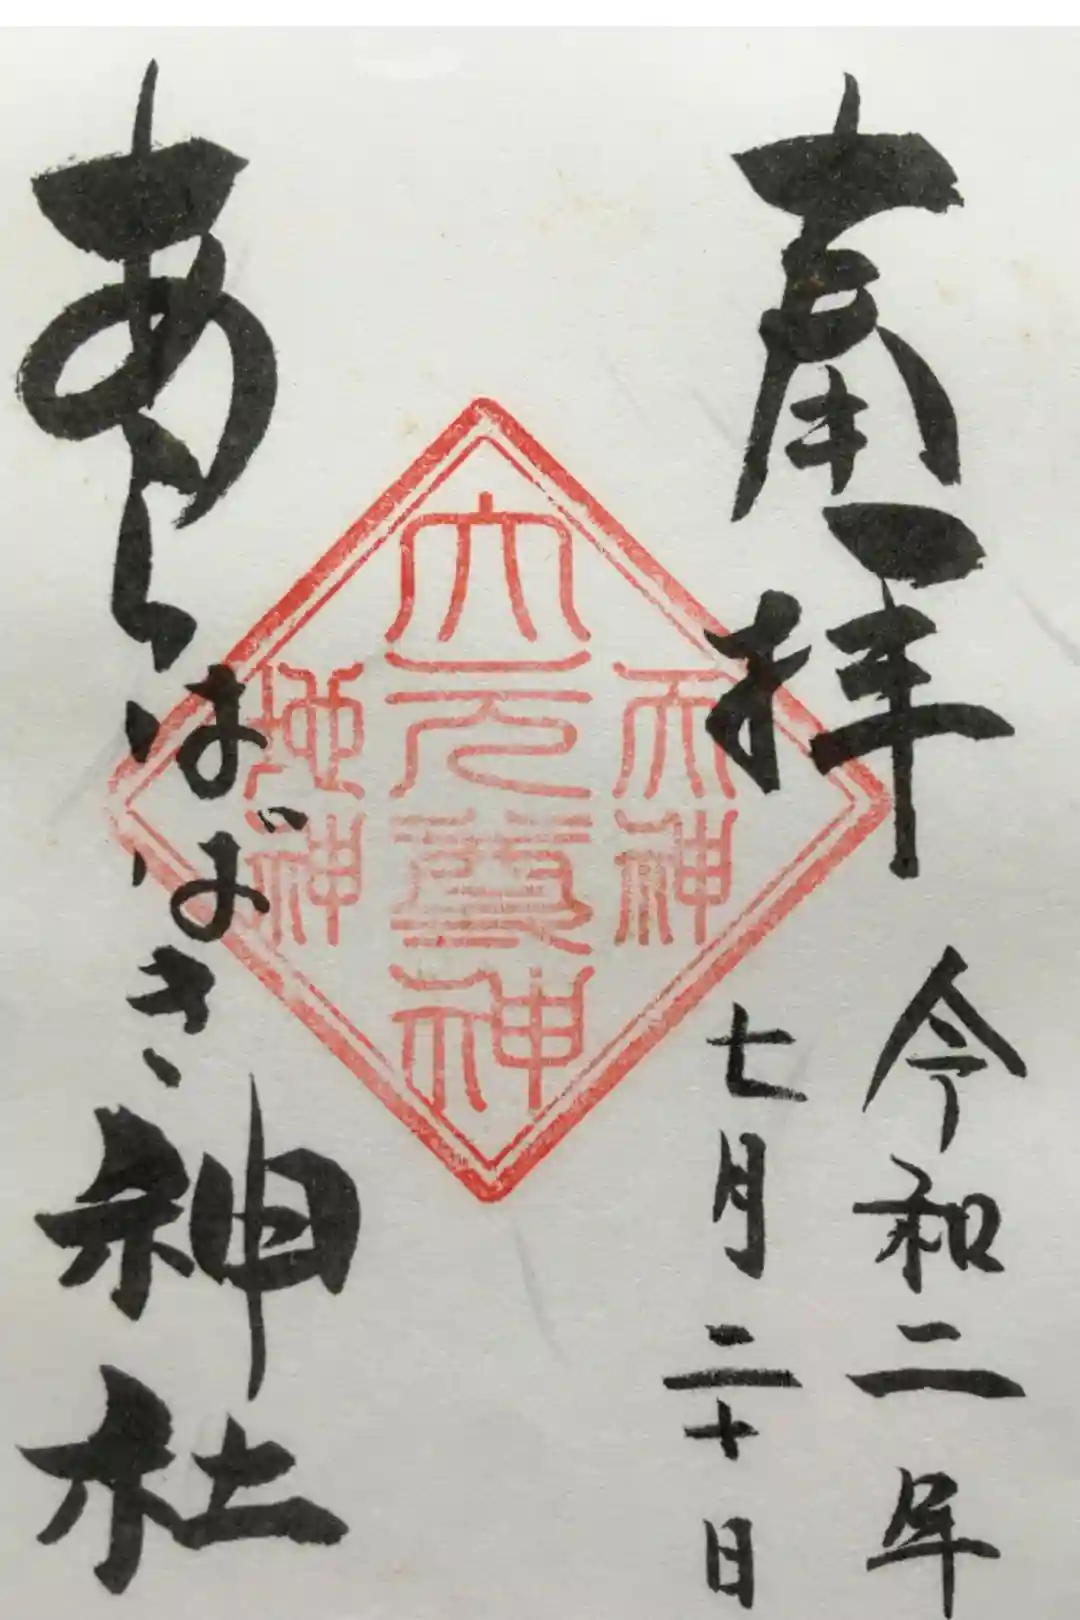 奉拝
令和二年
七月二十日
天神
大元尊神
地神
あらはばき神社